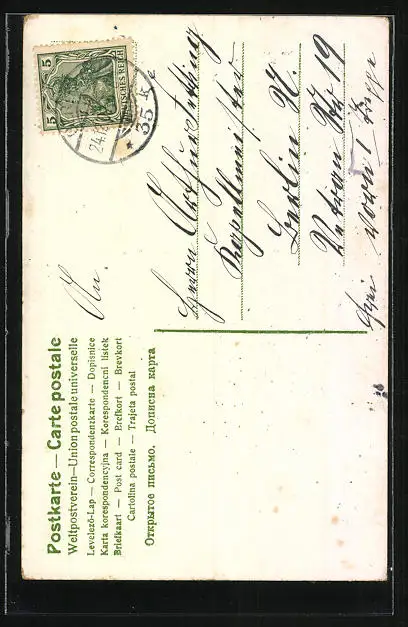 Postkarte — Carte postale
Weltpostverein—Union postale universelle
Levelező-Lap — Correspondenzkarte — Dopisnice
Karta korespondencyjna — Korespondenční lístek
Briefkaart — Post card — Brefkort — Brevkort
Cartolina postale — Trajeta postal
Открытое письмо. Дописна карта
5
5
DEUTSCHES REICH
24.
* 35 k
An
Herrn Arthur
Kapellmeister
Berlin N.
19
vorn 1 Treppe